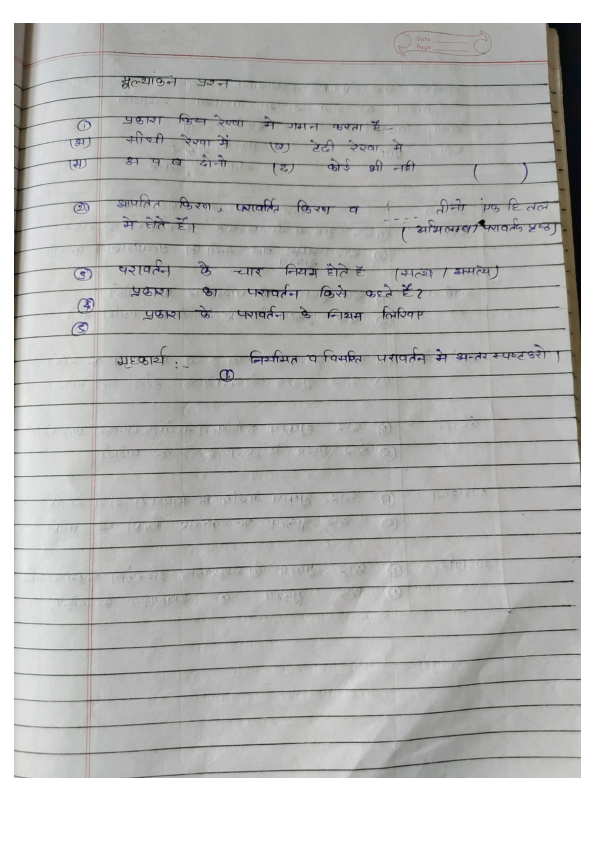 Date
Page
मूल्यांकन प्रश्न
① प्रकाश किस रेखा में गमन करता है:-
(अ) सीधी रेखा में (ब) टेढी रेखा मे
(स) अ व ब दोनो (द) कोई भी नही ( )
② आपतित किरण, परावर्तित किरण व .... तीनो एक हि तल
मे होते हैं। (अभिलम्ब/परावर्तक पृष्ठ)
③ परावर्तन के चार नियम होते है (सत्य / असत्य)
④ प्रकाश का परावर्तन किसे कहते हैं?
⑤ प्रकाश के परावर्तन के नियम लिखिए
गृहकार्य :- ① नियमित व विसरित परावर्तन मे अन्तर स्पष्ट करो।